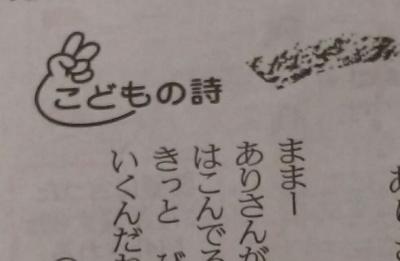 こどもの詩
ままー
ありさんが
はこんでる
きっと
いくんだね